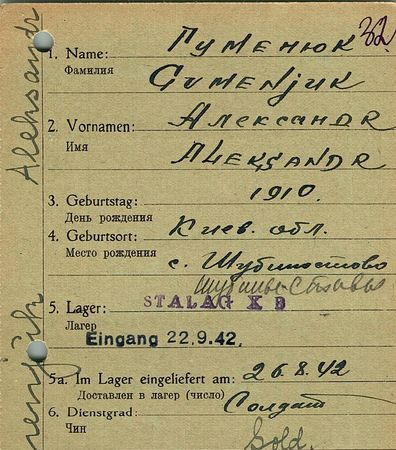 32.
1. Name: Гуменюк
Фамилия
Gumenjuk
2. Vornamen: Александр
Имя
Aleksandr
3. Geburtstag: 1910.
День рождения
4. Geburtsort: Киев. обл.
Место рождения
с.
5. Lager: STALAG X D
Лагер
Eingang 22.9.42.
5a. Im Lager eingeliefert am: 26.8.42
Доставлен в лагер (число)
6. Dienstgrad: Солдат
Чин
Sold.
Aleksandr